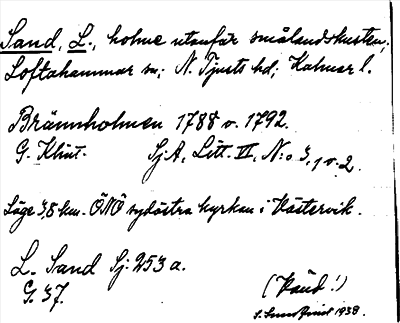 Sand, L., holme utanför smålandskusten;
Loftahammar sn; N. Tjusts hd; Kalmar l.
Brännholmen 1788 o. 1792.
G. Klint. Sj A, Litt. VI, N:o 3, 1 o. 2.
Läge 3,8 km. ÖNÖ sydöstra kyrkan i Västervik.
L. Sand Sj: 253 a.
G. 37. (Land!)
1938.